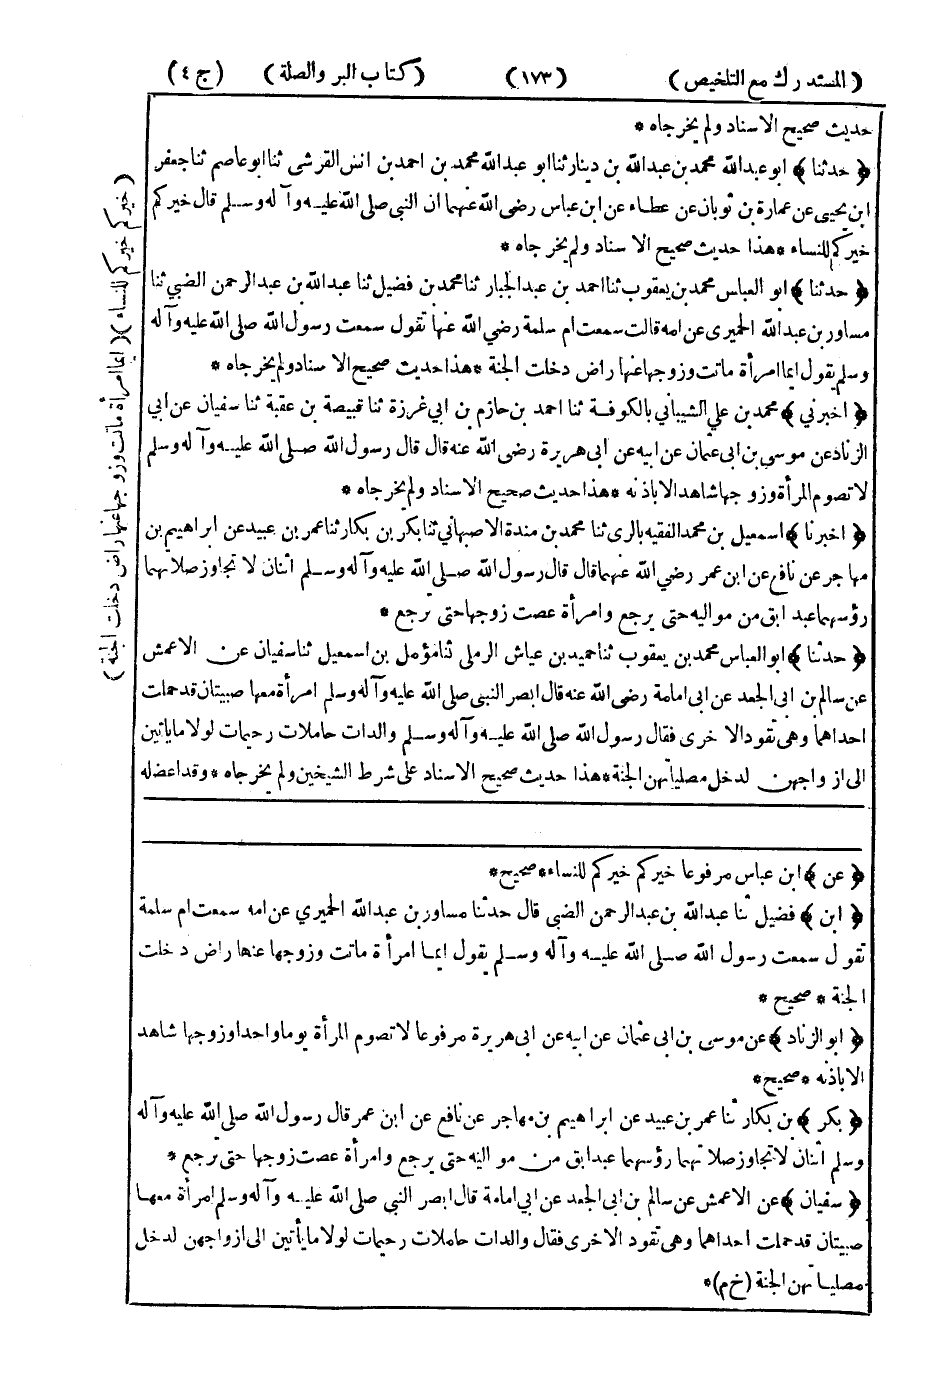 (المستدرك مع التلخيص) (١٧٣) (كتاب البر والصلة) (ج ٤)
حديث صحيح الاسناد ولم يخرجاه *
﴿ حدثنا ﴾ ابو عبدالله محمد بن عبدالله بن دينار ثنا ابو عبدالله محمد بن احمد بن انس القرشى ثنا ابو عاصم ثنا جعفر
ابن يحيى عن عمارة بن ثوبان عن عطاء عن ابن عباس رضى الله عنهما ان النبي صلى الله عليه وآله وسلم قال خيركم
خيركم للنساء * هذا حديث صحيح الاسناد ولم يخرجاه *
﴿ حدثنا ﴾ ابو العباس محمد بن يعقوب ثنا احمد بن عبد الجبار ثنا محمد بن فضيل ثنا عبدالله بن عبد الرحمن الضبي ثنا
مساور بن عبدالله الحميرى عن امه قالت سمعت ام سلمة رضي الله عنها تقول سمعت رسول الله صلى الله عليه وآله
وسلم يقول ايما امرأة ماتت وزوجها عنها راض دخلت الجنة * هذا حديث صحيح الاسناد ولم يخرجاه *
﴿ اخبرني ﴾ محمد بن علي الشيباني بالكوفة ثنا احمد بن حازم بن ابي غرزة ثنا قبيصة بن عقبة ثنا سفيان عن ابي
الزناد عن موسى بن ابى عثمان عن ابيه عن ابى هريرة رضى الله عنه قال قال رسول الله صلى الله عليه وآله وسلم
لا تصوم المرأة وزوجها شاهد الا باذنه * هذا حديث صحيح الاسناد ولم يخرجاه *
﴿ اخبرنا ﴾ اسمعيل بن محمد الفقيه بالرى ثنا محمد بن مندة الاصبهاني ثنا بكر بن بكار ثنا عمر بن عبيد عن ابراهيم بن
مهاجر عن نافع عن ابن عمر رضي الله عنهما قال قال رسول الله صلى الله عليه وآله وسلم اثنان لا تجاوز صلاتهما
رؤسهما عبد ابق من مواليه حتى يرجع وامرأة عصت زوجها حتى ترجع *
﴿ حدثنا ﴾ ابو العباس محمد بن يعقوب ثنا حميد بن عياش الرملى ثنا مؤمل بن اسمعيل ثنا سفيان عن الاعمش
عن سالم بن ابى الجعد عن ابى امامة رضى الله عنه قال ابصر النبى صلى الله عليه وآله وسلم امرأة معها صبيتان قد حملت
احداهما وهى تقود الاخرى فقال رسول الله صلى الله عليه وآله وسلم والدات حاملات رحيمات لولا ما يأتين
الى ازواجهن لدخل مصلياتهن الجنة * هذا حديث صحيح الاسناد على شرط الشيخين ولم يخرجاه * وقد اعضله
﴿ عن ﴾ ابن عباس مرفوعا خيركم خيركم للنساء * صحيح *
﴿ ابن ﴾ فضيل ثنا عبدالله بن عبدالرحمن الضبى قال حدثنا مساور بن عبدالله الحميري عن امه سمعت ام سلمة
تقول سمعت رسول الله صلى الله عليه وآله وسلم يقول ايما امرأة ماتت وزوجها عنها راض دخلت
الجنة * صحيح *
﴿ ابو الزناد ﴾ عن موسى بن ابى عثمان عن ابيه عن ابى هريرة مرفوعا لا تصوم المرأة يوما واحدا وزوجها شاهد
الا باذنه * صحيح *
﴿ بكر ﴾ بن بكار ثنا عمر بن عبيد عن ابراهيم بن مهاجر عن نافع عن ابن عمر قال رسول الله صلى الله عليه وآله
وسلم اثنان لا تجاوز صلاتهما رؤسهما عبد ابق من مواليه حتى يرجع وامرأة عصت زوجها حتى ترجع *
﴿ سفيان ﴾ عن الاعمش عن سالم بن ابى الجعد عن ابي امامة قال ابصر النبي صلى الله عليه وآله وسلم امرأة معها
صبيتان قد حملت احداهما وهى تقود الاخرى فقال والدات حاملات رحيمات لولا ما يأتين الى ازواجهن لدخل
مصلياتهن الجنة (خ م) *
(خيركم خيركم للنساء) (ايما امرأة ماتت وزوجها عنها راض دخلت الجنة)